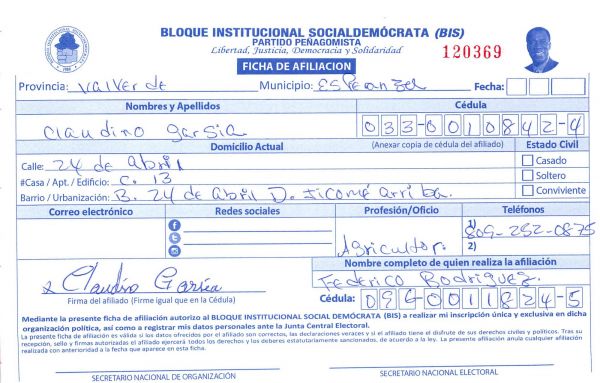 BLOQUE INSTITUCIONAL SOCIALDEMÓCRATA (BIS)
PARTIDO PEÑAGOMISTA
Libertad, Justicia, Democracia y Solidaridad
120369
FICHA DE AFILIACION
Provincia: Valverde Municipio: Fecha:
Nombres y Apellidos Cédula
Claudino Garsia 033-0010842-4
Domicilio Actual (Anexar copia de cédula del afiliado) Estado Civil
Calle: 24 de Abril Casado
#Casa / Apt. / Edificio: C. 13 Soltero
Barrio / Urbanización: B. 24 de Abril D. Jicomé arriba. Conviviente
Correo electrónico Redes sociales Profesión/Oficio Teléfonos
1) 809-252-0875
Agricultor. 2)
Nombre completo de quien realiza la afiliación
Claudino García Federico Rodriguez.
Firma del afiliado (Firme igual que en la Cédula) Cédula: 0011824-5
Mediante la presente ficha de afiliación autorizo al BLOQUE INSTITUCIONAL SOCIAL DEMÓCRATA (BIS) a realizar mi inscripción única y exclusiva en dicha
organización política, así como a registrar mis datos personales ante la Junta Central Electoral.
La presente ficha de afiliación es válida si los datos ofrecidos por el afiliado son correctos, las declaraciones veraces y si el afiliado tiene el disfrute de sus derechos civiles y políticos. Tras su
recepción, sello y firmas autorizadas el afiliado ejercerá todos los derechos y los deberes estatutariamente sancionados, de acuerdo a la ley. La presente afiliación anula cualquier afiliación
realizada con anterioridad a la fecha que aparece en esta ficha.
SECRETARIO NACIONAL DE ORGANIZACIÓN SECRETARIO NACIONAL ELECTORAL